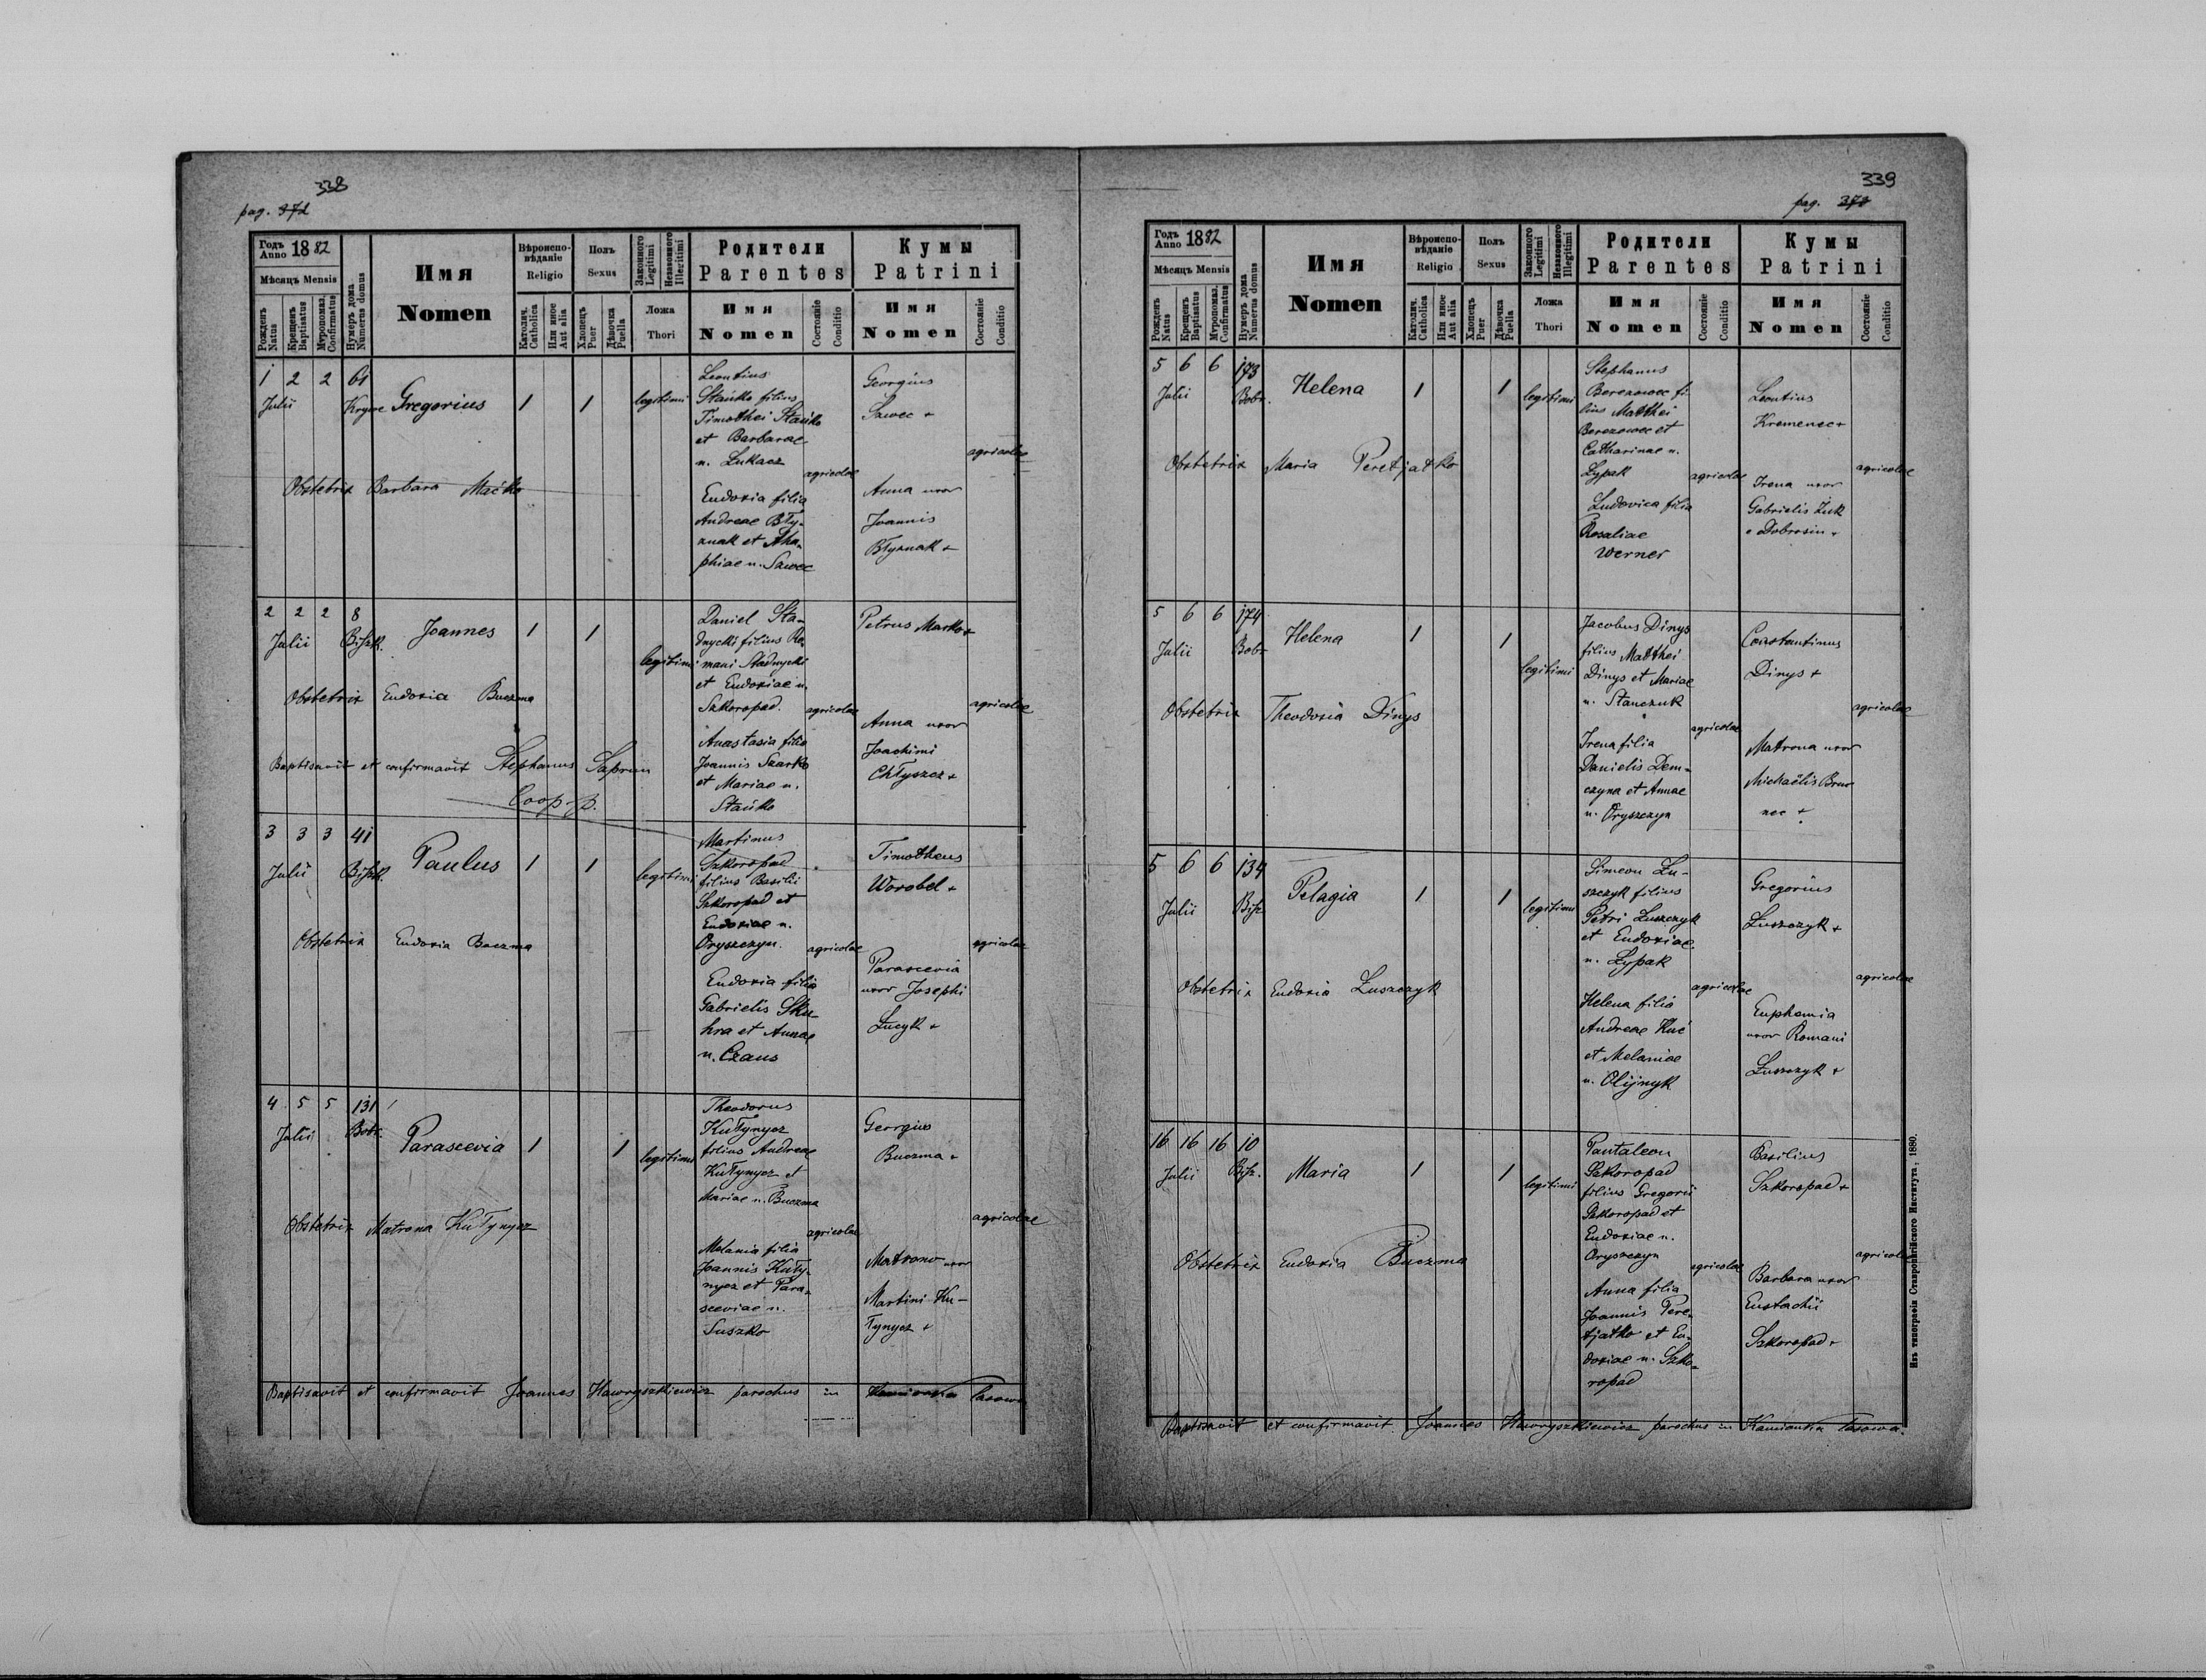 338
pag. 372
Годъ Anno 1882
Мѣсяцъ Mensis
Рожденъ Natus
Крещенъ Baptisatus
Мѵропомаз. Confirmatus
Нумеръ дома Numerus domus
Имя
Nomen
Вѣроиспо-
вѣданіе
Religio
Католич. Catholica
Или иное Aut alia
Полъ
Sexus
Хлопецъ Puer
Дѣвочка Puella
Законного Legitimi
Незаконного Illegitimi
Ложа
Thori
Родители
Parentes
Имя
Nomen
Состояніе
Conditio
Кумы
Patrini
Имя
Nomen
Состояніе
Conditio
1 2 2 61
Julii Kryve Gregorius 1 1 legitimi
Leontius
Stańko filius
Timothei Stańko
et Barbarae
n. Lukacz
agricolae
Eudoxia filia
Andreae Błyz-
nak et Aha-
phiae n. Sawec
Georgius
Szwec +
agricolae
Anna uxor
Joannis
Błyznak +
Obstetrix Barbara Maćko
2 2 2 8
Julii Biszk. Joannes 1 1 legitimi
Daniel Sta-
dnycki filius Ro-
mani Stadnycki
et Eudoxiae n.
Szkoropad.
agricolae
Anastasia filia
Joannis Szarko
et Mariae n.
Stańko
Petrus Marko +
agricolae
Anna uxor
Joachimi
Chłyszcz +
Obstetrix Eudoxia Buczma
Baptisavit et confirmavit Stephanus Saprun
Coop. p.
3 3 3 41
Julii Biszk. Paulus 1 1 legitimi
Martinus
Szkoropad
filius Basilii
Szkoropad et
Eudoxiae n.
Oryszczyn.
agricolae
Eudoxia filia
Gabrielis Sku-
hra et Annae
n. Czaus
Timotheus
Worobel +
agricolae
Parascevia
uxor Josephi
Łucyk +
Obstetrix Eudoxia Buczma
4 5 5 131
Julii Bobr. Parascevia 1 1 legitimi
Theodorus
Kułynycz
filius Andreae
Kułynycz et
Mariae n. Buczma
agricolae
Melania filia
Joannis Kuły-
nycz et Para-
sceviae n.
Suszko
Georgius
Buczma +
agricolae
Matrona uxor
Martini Ku-
łynycz +
Obstetrix Matrona Kułynycz
Baptisavit et confirmavit Joannes Hawryszkiewicz parochus in Kamionka lasowa
339
pag. 373
Годъ Anno 1882
Мѣсяцъ Mensis
Рожденъ Natus
Крещенъ Baptisatus
Мѵропомаз. Confirmatus
Нумеръ дома Numerus domus
Имя
Nomen
Вѣроиспо-
вѣданіе
Religio
Католич. Catholica
Или иное Aut alia
Полъ
Sexus
Хлопецъ Puer
Дѣвочка Puella
Законного Legitimi
Незаконного Illegitimi
Ложа
Thori
Родители
Parentes
Имя
Nomen
Состояніе
Conditio
Кумы
Patrini
Имя
Nomen
Состояніе
Conditio
5 6 6 173
Julii Bobr. Helena 1 1 legitimi
Stephanus
Berezowec fi-
lius Matthei
Berezowec et
Catharinae n.
Lypak
agricolae
Ludovica filia
Rosaliae
Werner
Leontius
Kremenec +
agricolae
Irena uxor
Gabrielis Żuk
e Dobrosin +
Obstetrix Maria Peretjatko
5 6 6 174
Julii Bobr Helena 1 1 legitimi
Jacobus Dinys
filius Matthei
Dinys et Mariae
n. Stanczuk
agricolae
Irena filia
Danielis Dem-
czyna et Annae
n. Oryszczyn
Constantinus
Dinys +
agricolae
Matrona uxor
Michaëlis Brow
nec +
Obstetrix Theodosia Dinys
5 6 6 134
Julii Bisz Pelagia 1 1 legitimi
Simeon Łu-
szczyk filius
Petri Łuszczyk
et Eudoxiae
n. Lypak
agricolae
Helena filia
Andreae Kuć
et Melaniae
n. Olijnyk
Gregorius
Łuszczyk +
agricolae
Euphemia
uxor Romani
Łuszczyk +
Obstetrix Eudoxia Łuszczyk
16 16 16 10
Julii Bisz. Maria 1 1 legitimi
Pantaleon
Szkoropad
filius Gregorii
Szkoropad et
Eudoxiae n.
Oryszczyn
agricolae
Anna filia
Joannis Pere-
tjatko et Eu-
doxiae n. Szko-
ropad
Basilius
Szkoropad +
agricolae
Barbara uxor
Eustachii
Szkoropad +
Obstetrix Eudoxia Buczma
Baptisavit et confirmavit Joannes Hawryszkiewicz parochus in Kamionka lasowa.
Изъ типографіи Ставропигійского Института, 1880.